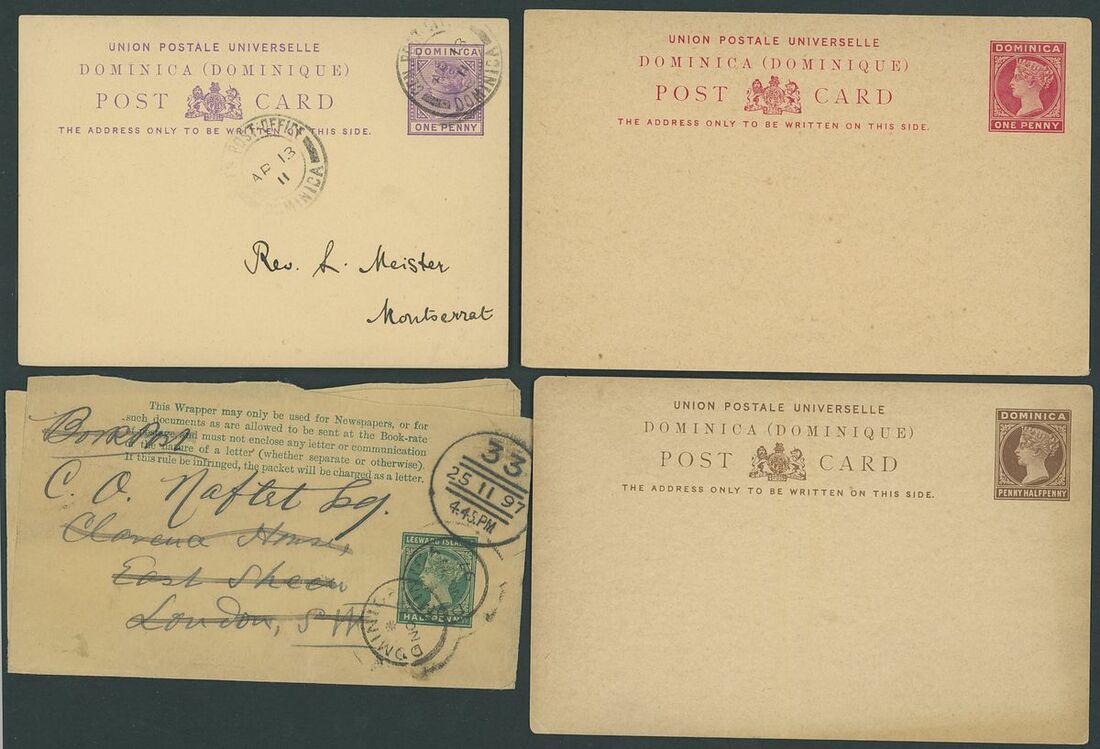 UNION POSTALE UNIVERSELLE
DOMINICA (DOMINIQUE)
POST CARD
THE ADDRESS ONLY TO BE WRITTEN ON THIS SIDE.
DOMINICA
ONE PENNY
DOMINICA
POST OFFICE
AP 13
11
DOMINICA
Rev. L. Meister
Montserrat
UNION POSTALE UNIVERSELLE
DOMINICA (DOMINIQUE)
POST CARD
THE ADDRESS ONLY TO BE WRITTEN ON THIS SIDE.
DOMINICA
ONE PENNY
This Wrapper may only be used for Newspapers, or for
such documents as are allowed to be sent at the Book-rate
and must not enclose any letter or communication
of the nature of a letter (whether separate or otherwise).
If this rule be infringed, the packet will be charged as a letter.
Book Post
C. O. Naftel Esq.
Clarence House,
East Sheen
London, S W
33
25 11 97
4.45.PM
LEEWARD ISLANDS
HALFPENNY
DOMINICA
NO
UNION POSTALE UNIVERSELLE
DOMINICA (DOMINIQUE)
POST CARD
THE ADDRESS ONLY TO BE WRITTEN ON THIS SIDE.
DOMINICA
PENNY HALFPENNY